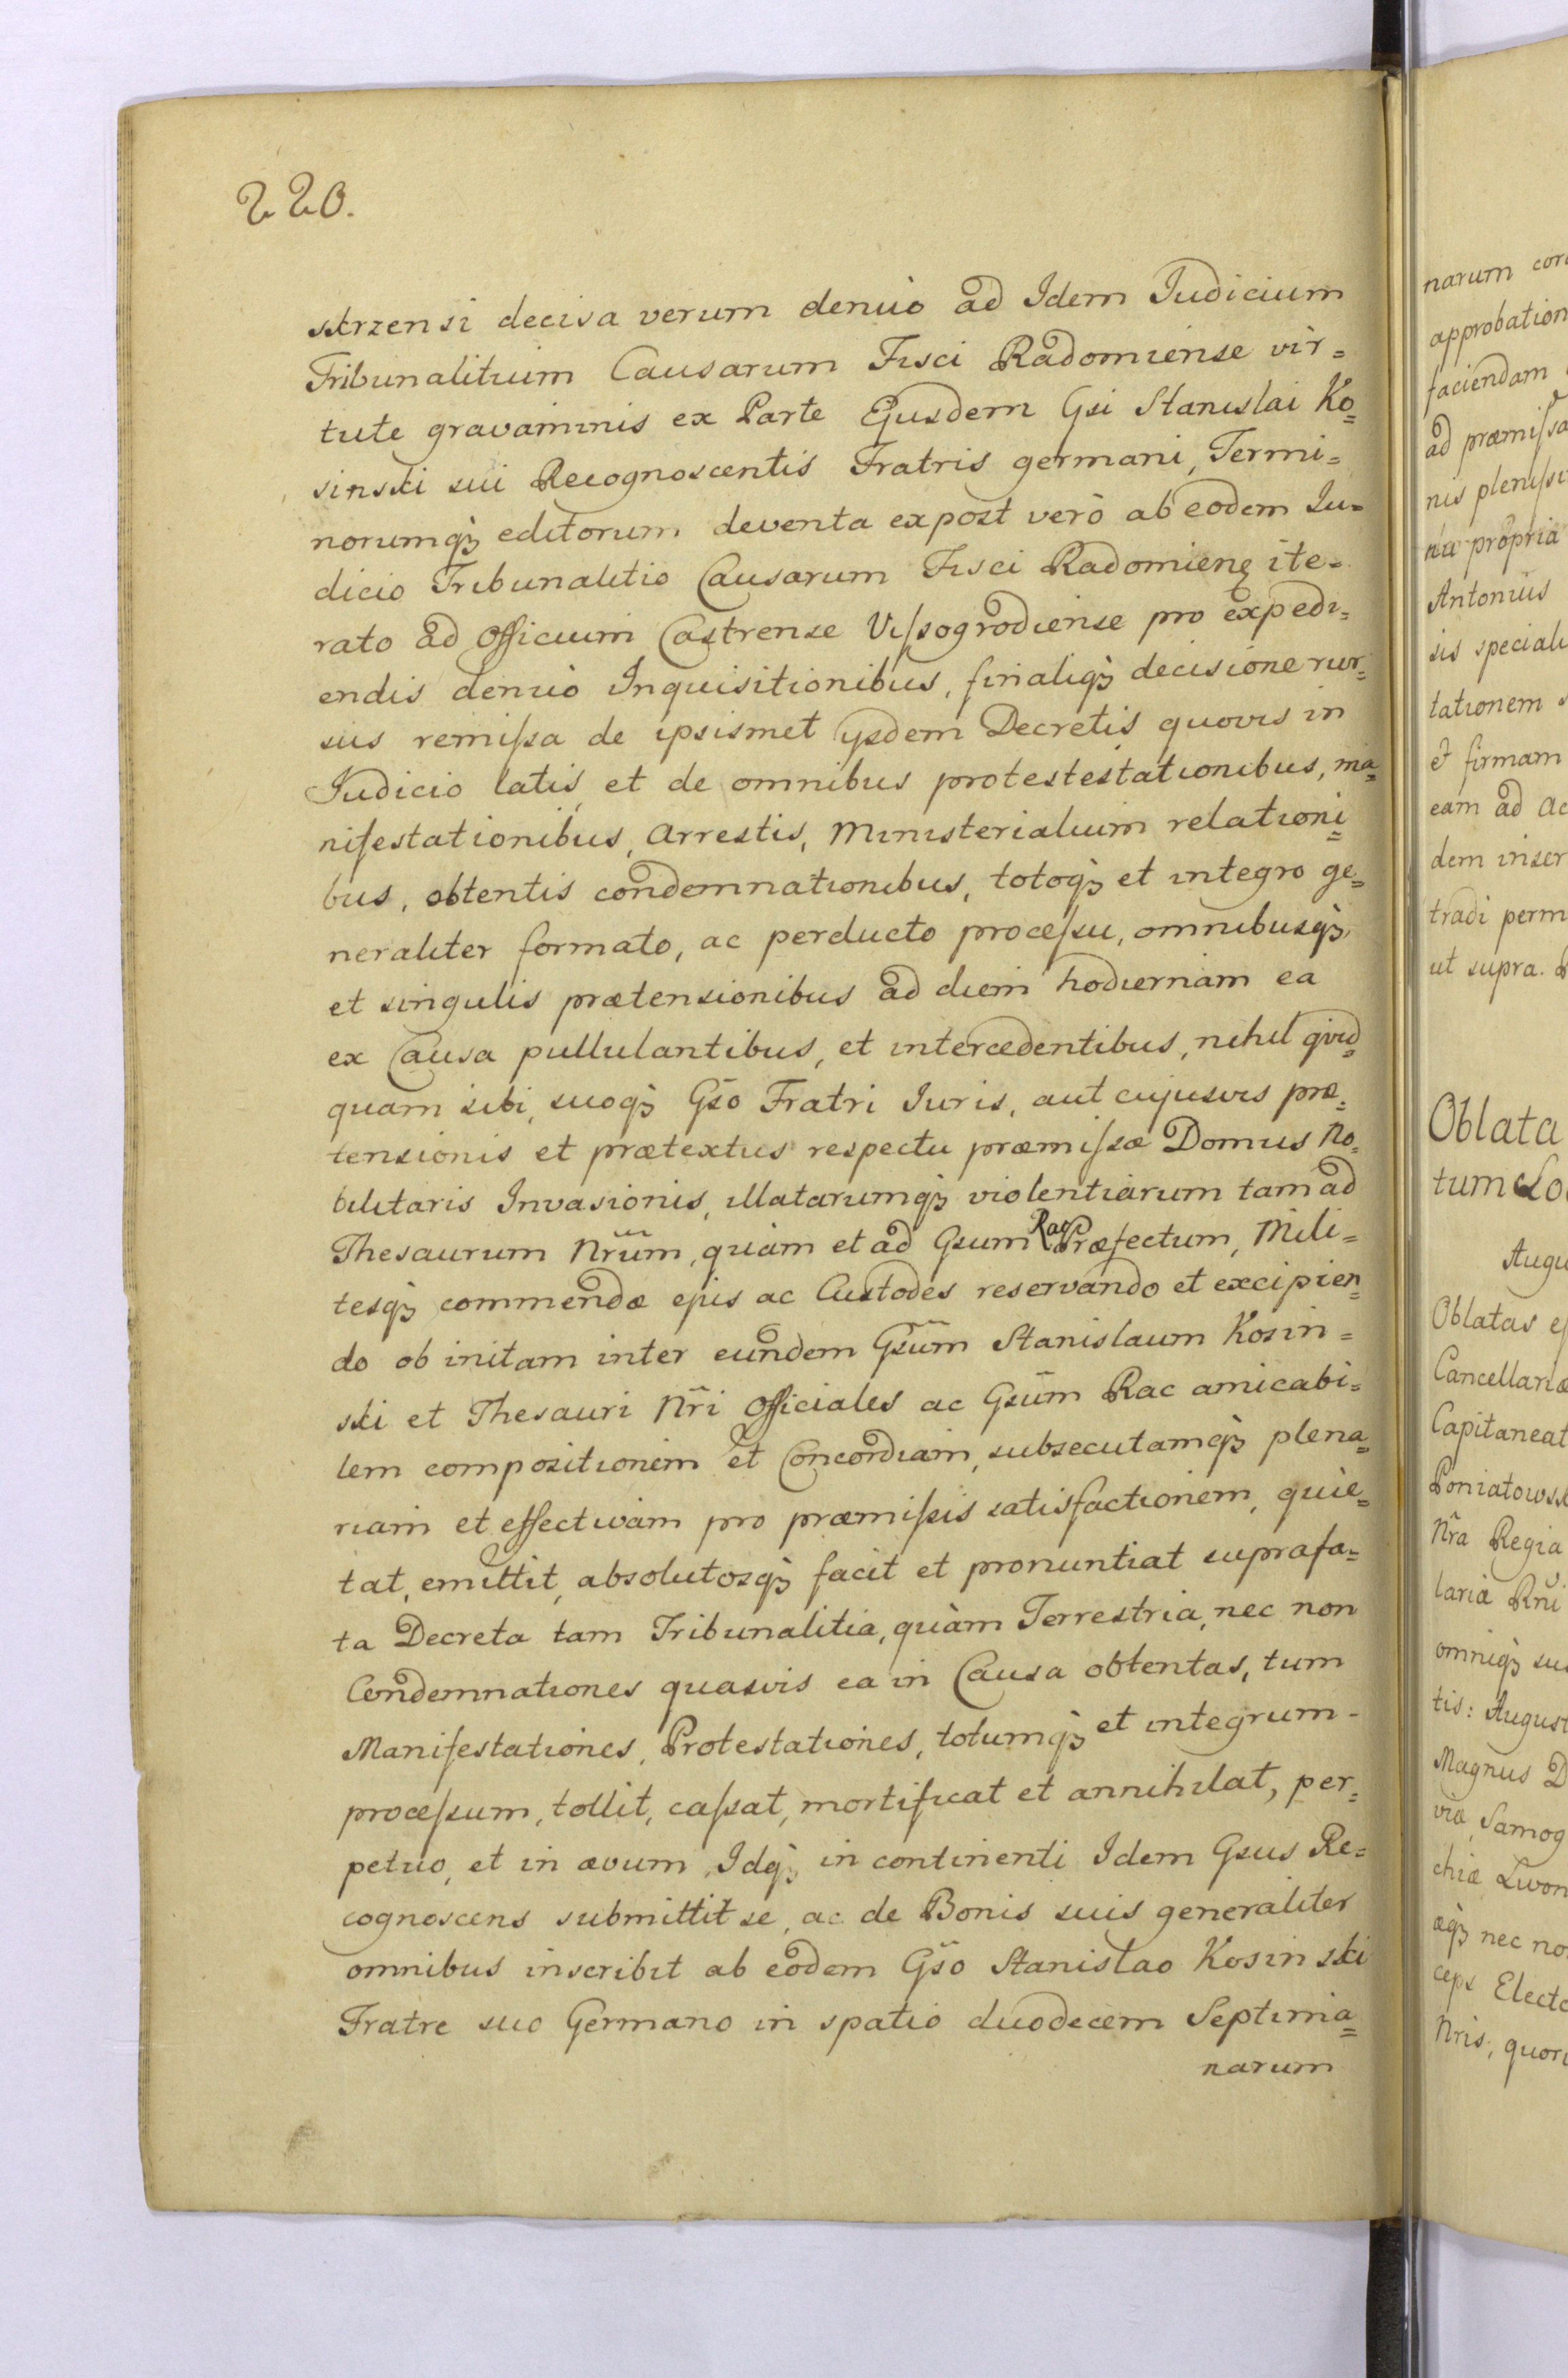 220.
skrzensi decisa verum denuò ad Idem Judicium
Tribunalitium Causarum Fisci Radomiense vir=
tute gravaminis ex Parte Ejusdem Gsi Stanislai Ko=
sinski sui Recognoscentis Fratris germani, Termi=
norumq₃ editorum deventa expost verò ab eodem Ju=
dicio Tribunalitio Causarum Fisci Radomien̄ ite=
rato ad Officium Castrense Vissogrodiense pro expedi=
endis denuò Inquisitionibus, finaliq₃ decisione rur=
sus remissa de ipsismet ysdem Decretis quovis in
Judicio latis, et de omnibus protestestationibus, ma=
nifestationibus, Arrestis, Ministerialium relationi=
bus, obtentis condemnationibus, totoq₃ et integro ge=
neraliter formato, ac perducto processu, omnibusq₃
et singulis prætensionibus ad diem hodiernam ea
ex Causa pullulantibus, et intercedentibus, nihil qvid=
quam sibi, suoq₃ Gso Fratri Juris, aut cujusvis præ=
tensionis et prætextus respectu præmissæ Domus No=
bilitaris Invasionis, illatarumq₃ violentiarum tam ad
Thesaurum Nr̃um, quàm et ad Gsum Rac Præfectum, Mili=
tesq₃ commendæ ejus ac Custodes reservando et excipien=
do ob initam inter eundem Gs̃um Stanislaum Kosin=
ski et Thesauri Nr̃i Officiales ac Gs̃um Rac amicabi=
lem compositionem et Concordiam, subsecutamq₃ plena=
riam et effectivam pro præmissis satisfactionem, quie=
tat, emittit, absolutosq₃ facit et pronuntiat suprafa=
ta Decreta tam Tribunalitia, quàm Terrestria, nec non
Condemnationes quasvis ea in Causa obtentas, tum
Manifestationes, Protestationes, totumq₃ et integrum
processum, tollit, cassat, mortificat et annihilat, per=
petuo, et in ævum, Idq₃ in continenti Idem Gsus Re=
cognoscens submittit se, ac de Bonis suis generaliter
omnibus inscribit ab eodem Gs̃o Stanislao Kosinski
Fratre suo Germano in spatio duodecem Septima=
narum
narum
approbation
faciendam
ad præmissa
nis plenissi
nu propria
Antonius
sis speciali
tationem
et firmam
eam ad Ac
dem inser
tradi perm
ut supra.
Oblata
tum Lo
Augu
Oblatas
Cancellariæ
Capitaneat
Poniatowsk
Nr̃a Regia
laria Rñi
omniq₃ su
tis: August
Magnus D
viæ, Samog
chiæ Livon
æq₃ nec no
ceps Electo
Nris, quor